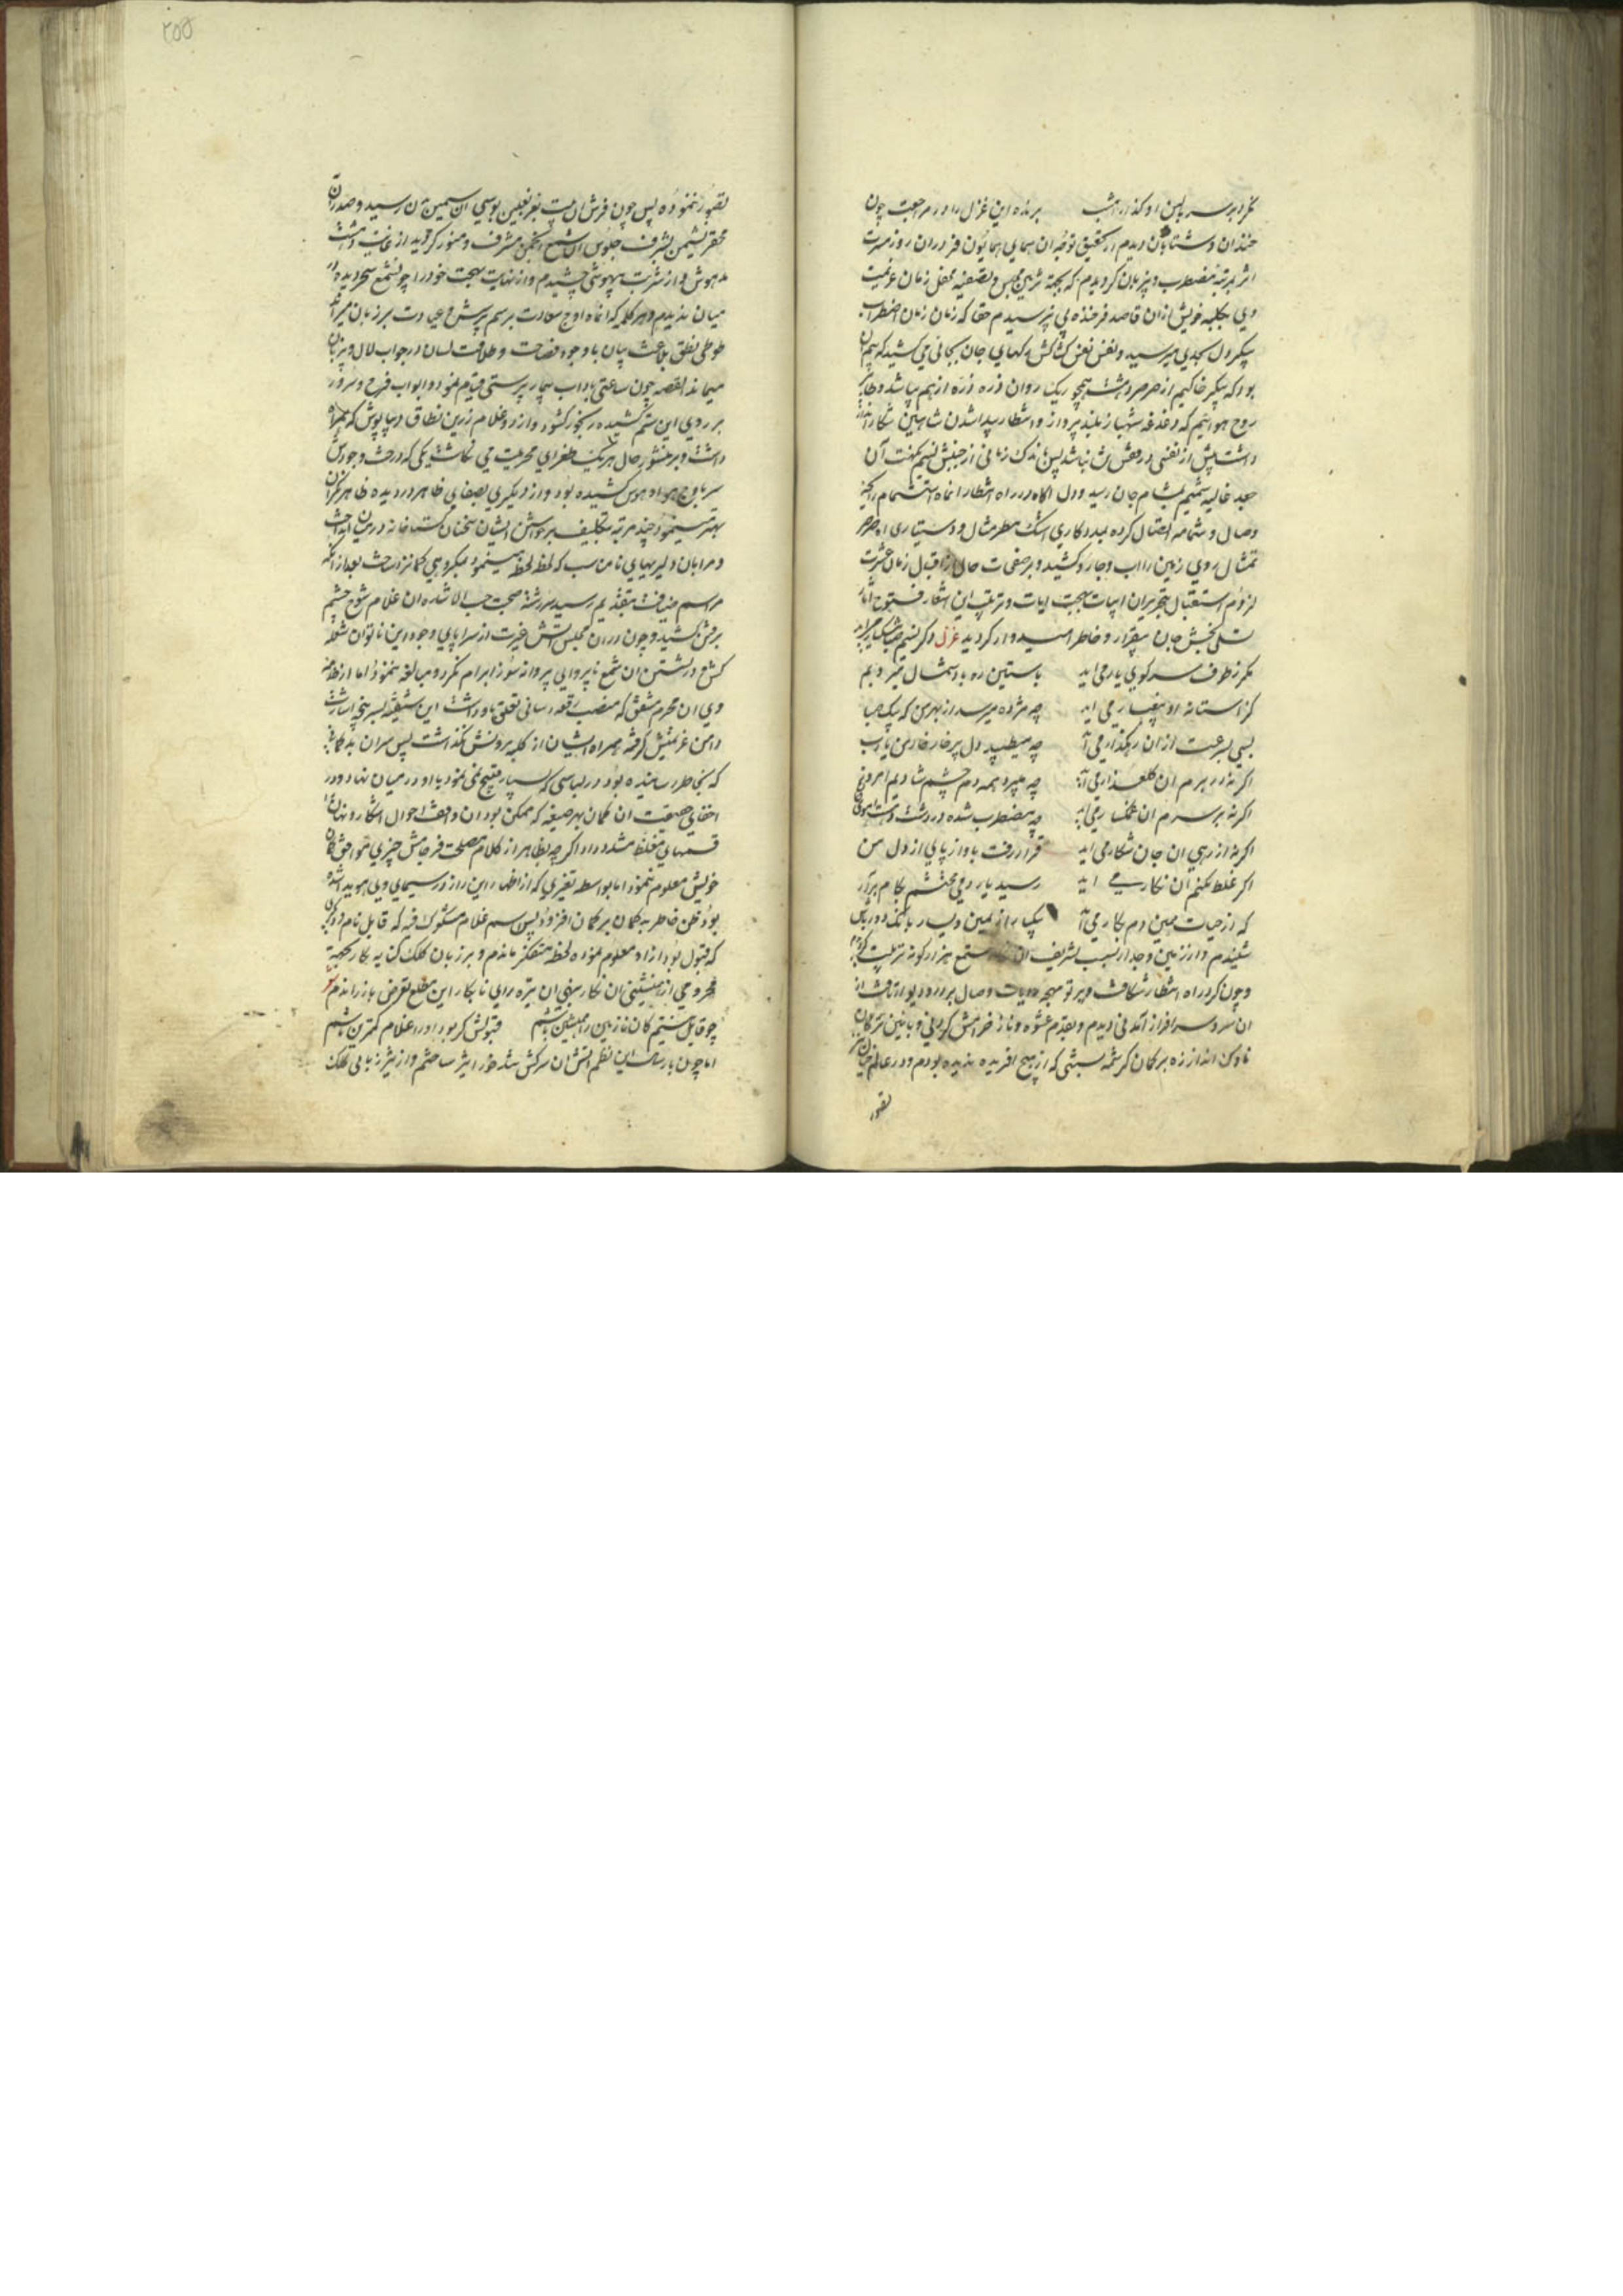 نکرد بر سر بالین او گذار امشب برنده این غزل را در مراجعت چون
خندان و شتابان دیدم از تحقیق توجه آن همای همایون فر در آن روز مسرت
اثر بمرتبه مضطرب و پریزبان کردیدم که بجهة تزیین مجلس و تصفیه محفل زمان عزیمت
وی بکلبه خویش از آن قاصد فرخنده پی نپرسیدم حقا که زمان زمان اضطراب
پیکر دل بحدی میرسید و نفس نفس کشاکش رکهای جان بجائی می کشید که بیم آن
بود که پیکر خاکیم از صرصر دهشت همچو ریک روان ذره ذره از هم بپاشد و طایر
روح هوائیم که دغدغه شهباز بلند پرواز و انتظار پیدا شدن شاهین شکار انداز
داشت پیش از نفسی در قفس تن نباشد پس باندک زمانی از جنبش نسیم نکهت آن
جعد غالیه شمیم بمشام جان رسید و دل اگاه در راه انتظار انماه استشمام رایحه
وصال و شمامه اتصال کرده بمددکاری اشک مطر مثال و دستیاری اه صرصر
تمثال روی زمین را اب و جارو کشید و بر صفحات حال از اقبال زمان عشرت
لزوم استقبال بتحریر آن ابیات بهجت ایات و ترتیب این اشعار فتوح آثار
تسلی بخش جان بیقرار و خاطر امیدوار کردید غزل دگر نسیم صبا مشکبار می اید
مگر ز طرف سر کوی یار می اید باستین ره باد شمال میروبم
کز آستانه او پیغبار می اید چه مژده میرسد از بهر من که پیک صبا
بسی بسرعت از ان رهگذار می آید چه میطپد دل پر خار خار من یا رب
اگر نه در برم ان گلعذار می آید چه میپرد همه دم چشم شادیم امروز
اگر نه بر سرم ان غمگسار می آید چه مضطرب شده در دشت تن آهوی جان
اگر نه از پی ان جان شکار می اید قرار رفت باواز پای از دل من
اگر غلط نکنم ان نگار می اید رسید یار و می محتشم بکام برآر
که از حیات همین دم بکار می آید یکبار از یمین و یسار بانگ دورباش
شنیدم و از زمین و جدار بسبب تشریف ان شمع هزار گونه تربیت
و چون گرد راه انتظار شکافت و پرتو مهجه رویات وصال بر در و دیوار تافت از
ان سرو سر افراز آمدنی دیدم و بقدم عشوه و ناز خرامش کردنی و با چنین ترکان
ناوک انداز زه بر کمان کرشمه بستنی که از هیچ افریده ندیده بودم و در عالم خیال نیز
تصور
۲۵۵
تصور ننموده پس چون فرش ان بیت بعز نعلین بوسی ان سیمین تن رسید و صدر ان
محقر نشیمن بشرف جلوس ان شمع انجمن مشرف و منور کردید از غایت دهشت
مدهوش و از شربت بیهوشی چشیدم و از نهایت بهجت خود را چو شمع سحر دیده در
میان ندیدم و هر کلمه که انماه اوج سعادت برسم پرسش و عیادت بر زبان میراند
طوطی نطق بلاغت بیان با وجود فصاحت و طلاقت لسان در جواب لال و پریزبان
میماند القصه چون ساعتی باداب بیمار پرستی قیام نمود و ابواب فرح و سرور
بر روی این ستم کشیده رنجور گشود و از دو غلام زرین نطاق دیبا پوش که همراه
داشت و بر منشور حال هر یک طغرای محرمیت می نگاشت یکی که در خت وجودش
سر باوج هوا و هوس کشیده بود و از دیگری بصفای ظاهر در دیده ظاهر نگران
بهتر مینمود چند مرتبه بتکلیف برخواستن ایشان سخنان گستاخانه در میان انداخت
و مرا بان دلیریهای نامناسب که لحظه لحظه مینمود میکروهی گمانزد ساخت بعد از انکه
مراسم ضیافت بتقدیم رسید سررشته صحبت حسب الاشاره ان غلام شوخ چشم
برفتن کشید و چون در ان مجلس اتش غیرت از سراپای وجود این ناتوان شعله
کش و در نشستن ان شمع ناپروایی پروانه سوز ابرام نکرد و مبالغه ننمود اما از خدمه
وی ان محرم مشفق که منصب رقعه رسانی تعلق باو داشت این شیفته بسر پنجه اشارت
دامن عزیمتش گرفته همراه ایشان از کلبه بیرونش نگذاشت پس سر ان بدگمانی
که بخاطر رسانیده بود در لباسی که بسیار قبیح نمی نمود با او در میان نهاد و در
اخفای حقیقت ان گمان بهر صیغه که ممکن بود ان واقف احوال اشکار و نهان را
قسمهای مغلظ مشدد داد اگر چه بظاهر از کلام مصلحت فرجامش چیزی موافق گمان
خویش معلوم ننمود اما بواسطه تغیری که از اظهار این راز در سیمای وی هویدا شده
بود ظن خاطر بدگمان بر گمان افزود پس اسم غلام مشکوک فیه که قابل نام دیگری
که قبول بود از او معلوم نموده لحظه متفکر ماندم و بر زبان کلک کنایه بکار بجهة
محرومی از همنشینی ان نگار ببزم ان تیره رای نابکار این مطلع تعرض بار راندم شعر
چو قابل نیستم کان نازنین را همنشین باشم قبولش گر بود او را غلام کمترین باشم
اما چون بارسال این نظم اتش ان سرکش تند خو را تیز ساختم و از تیز زبانی کلک